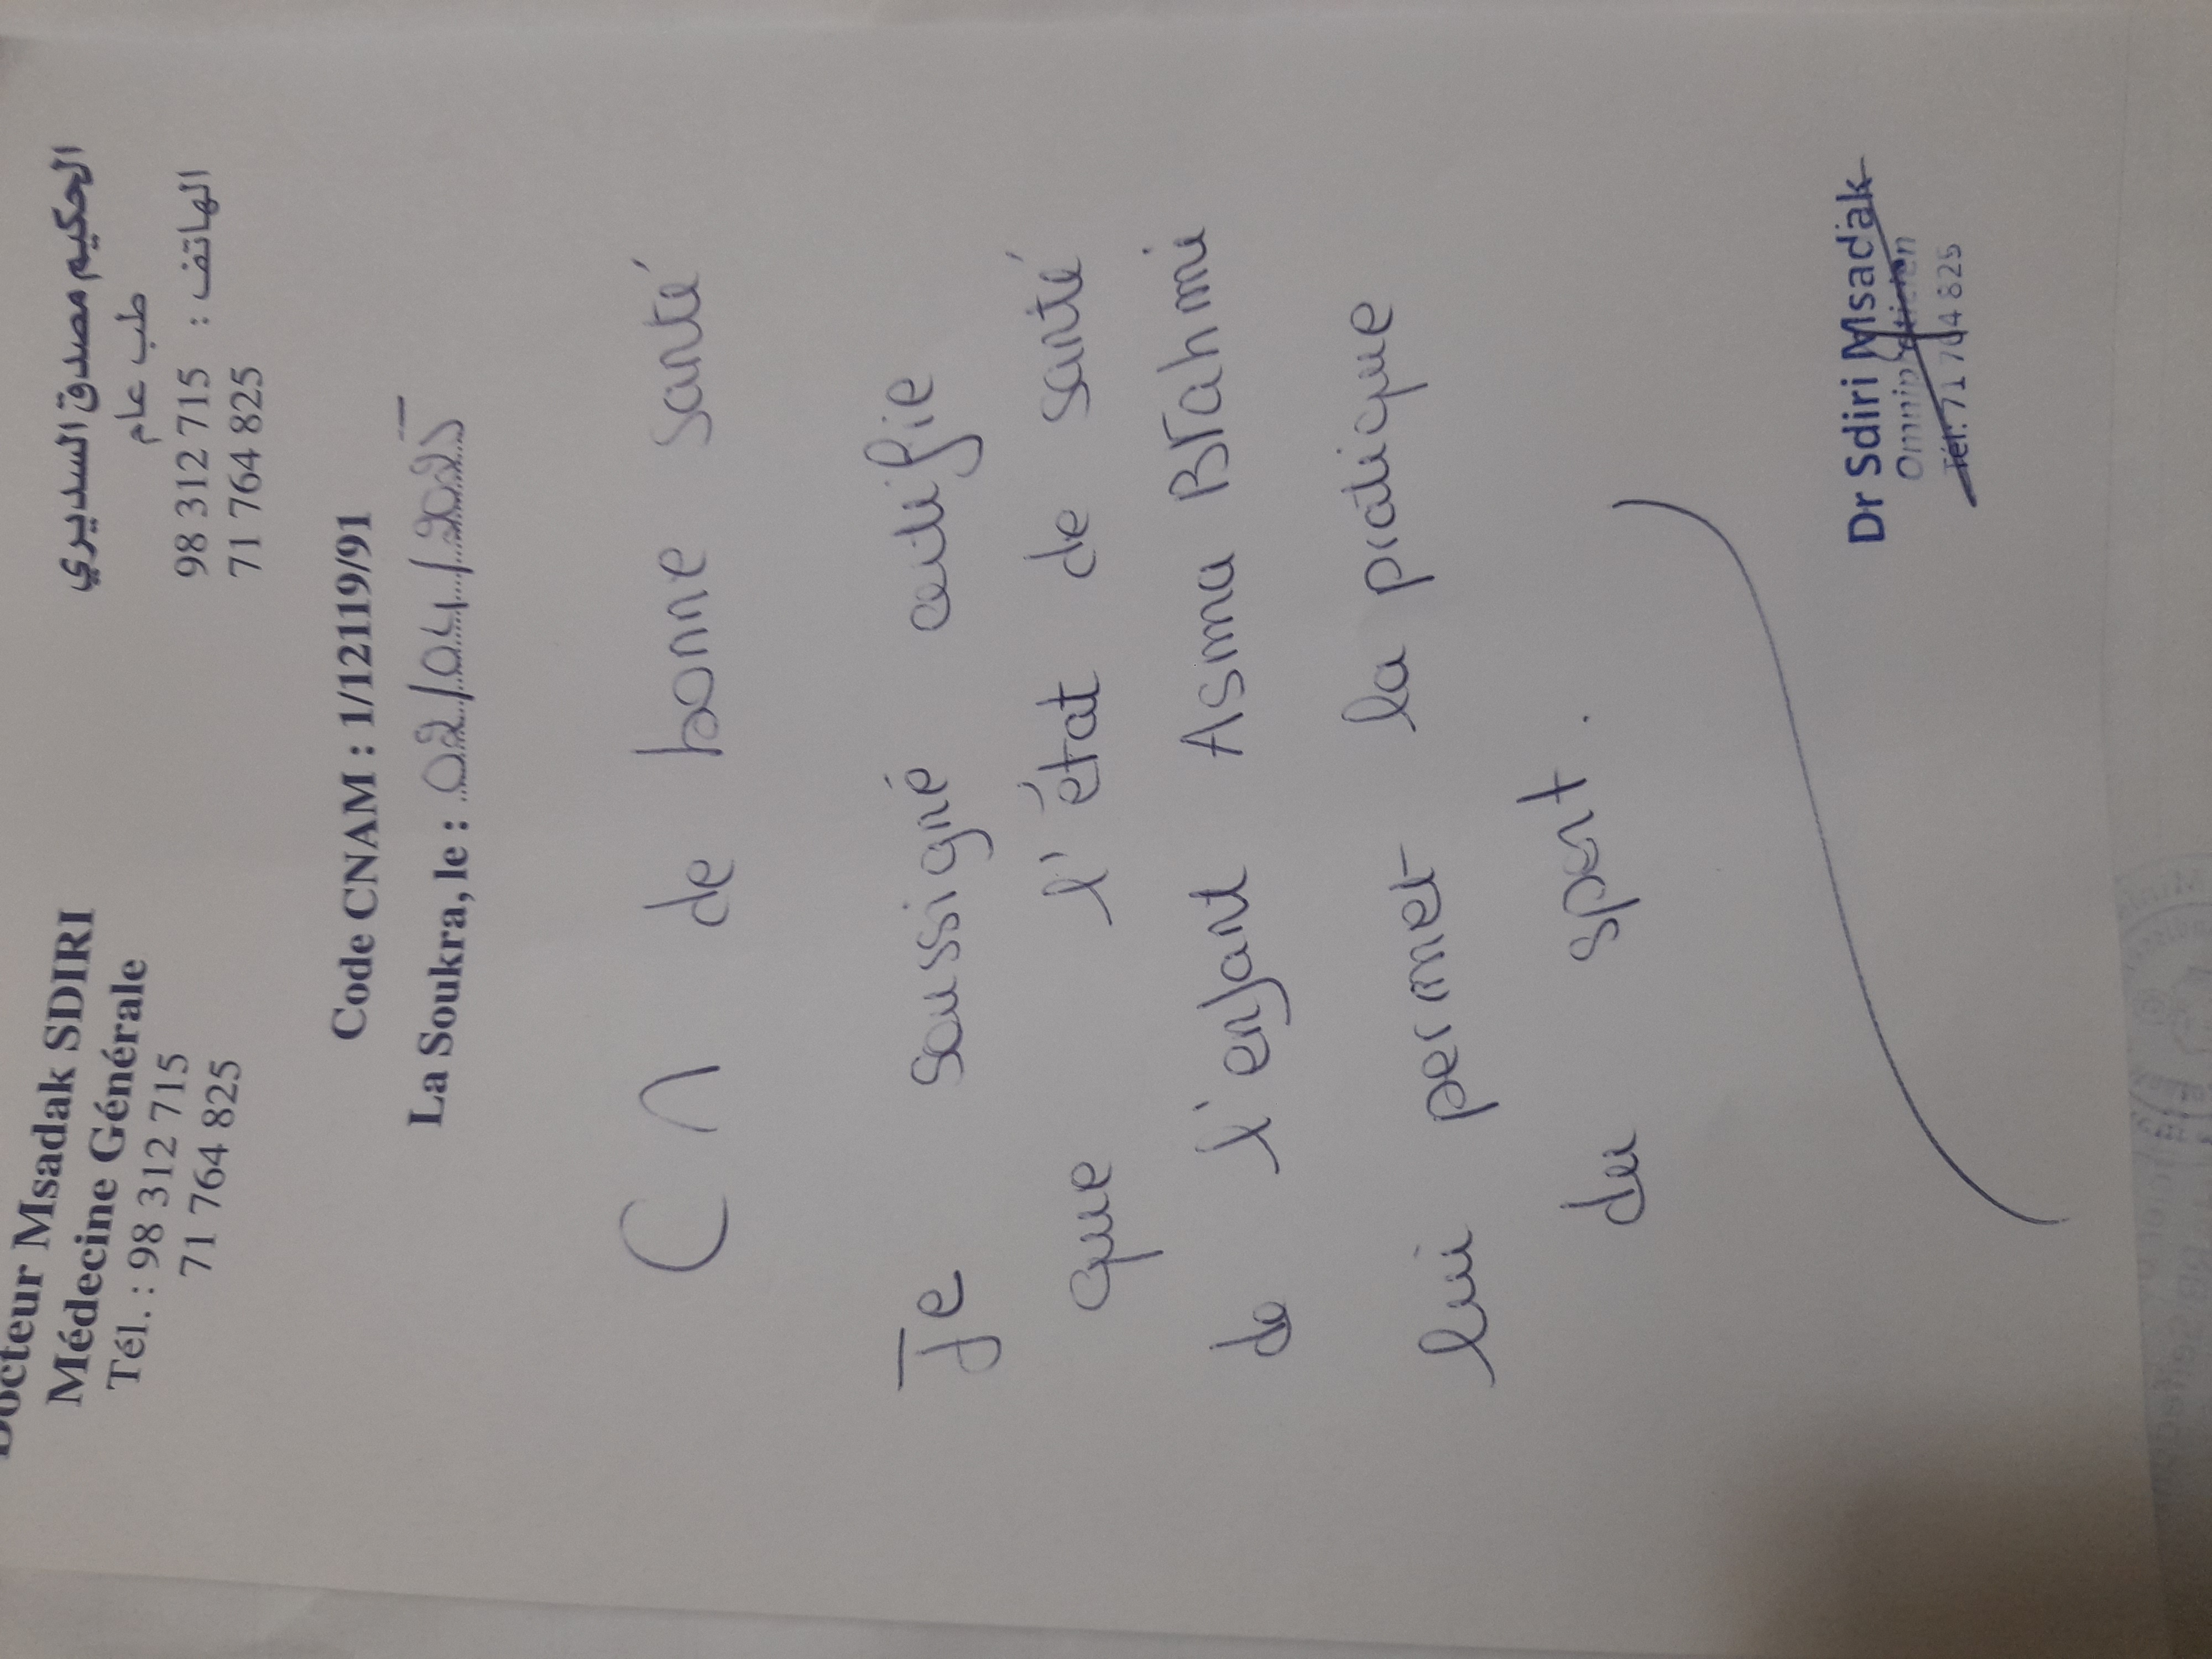 Docteur Msadak SDIRI
Médecine Générale
Tél. : 98 312 715
71 764 825
الحكيم مصدق السديري
طب عام
الهاتف : 98 312 715
71 764 825
Code CNAM : 1/12119/91
La Soukra, le : 02/04/2025
CM de bonne santé
Je soussigné certifie
que l'état de santé
de l'enfant Asma BRahmi
lui permet la pratique
du sport.
Dr Sdiri Msadak
Omnipraticien
Tél: 71 764 825